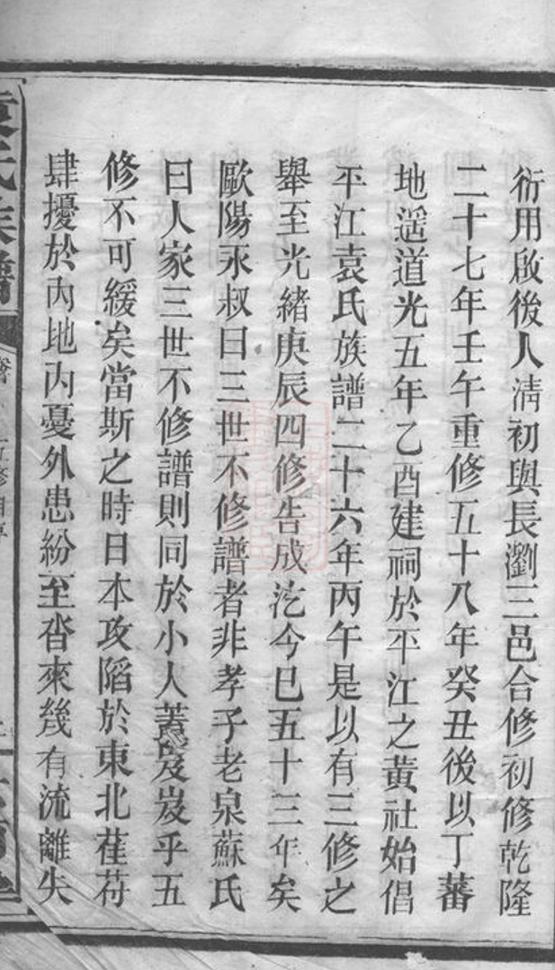 衍用啟後人淸初與長瀏三邑合修初修乾隆
二十七年壬午重修五十八年癸丑後以丁蕃
地遥道光五年乙酉建祠於平江之黃社始倡
平江袁氏族譜二十六年丙午是以有三修之
舉至光緒庚辰四修告成迄今巳五十三年矣
歐陽永叔曰三世不修譜者非孝子老泉蘇氏
曰人家三世不修譜則同於小人蓋岌岌乎五
修不可緩矣當斯之時日本攻陷於東北萑苻
肆擾於內地內憂外患紛至沓來幾有流離失
袁氏族譜